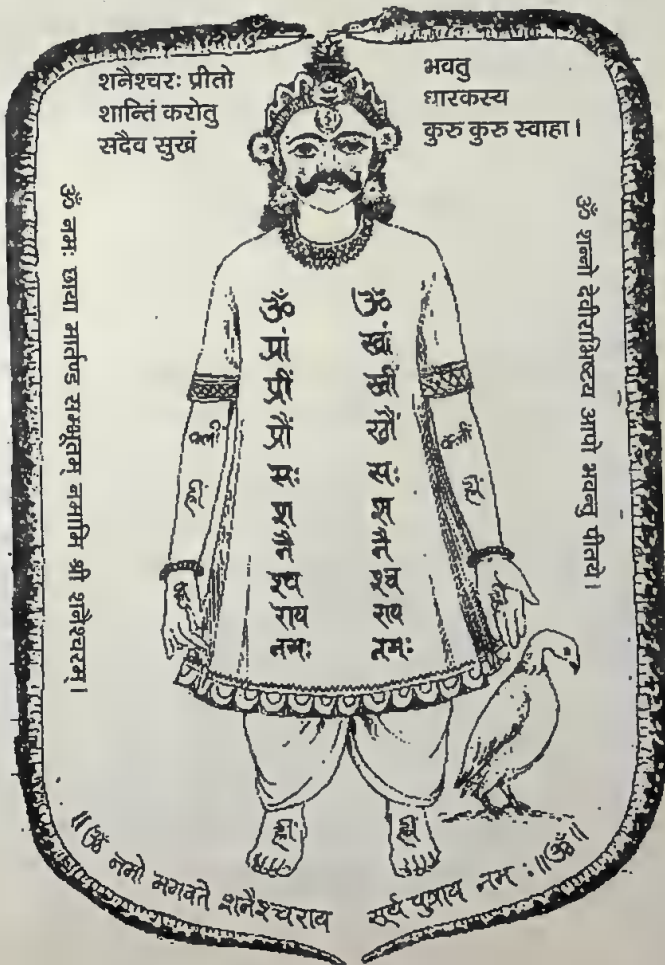 शनैश्चरः प्रीतो
शान्तिं करोतु
सदैव सुखं
भवतु
धारकस्य
कुरु कुरु स्वाहा।
ॐ नमः छाया मार्तण्ड सम्भूतम् नमामि श्री शनैश्चरम्।
ॐ शन्नो देवीरभिष्टय आपो भवन्तु पीतये।
ॐ
प्रां
प्रीं
प्रौं
सः
श
नै
श्च
राय
नमः
ॐ
खां
खीं
खौं
सः
श
नै
श्च
राय
नमः
॥ॐ नमो भगवते शनैश्चराय सूर्य पुत्राय नमः॥ॐ॥